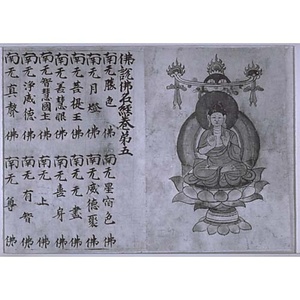 佛說佛名經卷第五
南无勝色佛 南无星宿色佛
南无月燈佛 南无威德聚佛
南无菩提王佛 南无无盡佛
南无善慧眼佛 南无喜身佛
南无智慧國土佛 南无上佛
南无淨威德佛 南无有智佛
南无真聲佛 南无尊佛